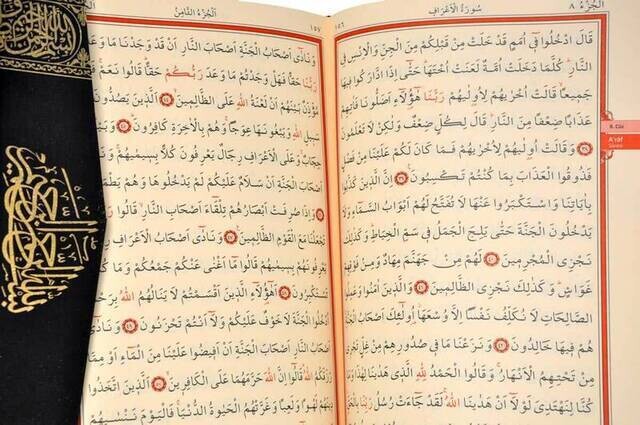 اَلْجُزْءُ ٨ سُورَةُ الْاَعْرَافِ
قَالَ ادْخُلُوا فِي اُمَمٍ قَدْ خَلَتْ مِنْ قَبْلِكُمْ مِنَ الْجِنِّ وَالْاِنْسِ فِي
النَّارِ كُلَّمَا دَخَلَتْ اُمَّةٌ لَعَنَتْ اُخْتَهَا حَتّٰى اِذَا ادَّارَكُوا فِيهَا
جَمِيعًا قَالَتْ اُخْرٰيهُمْ لِاُولٰيهُمْ رَبَّنَا هٰٓؤُلَاءِ اَضَلُّونَا فَاٰتِهِمْ
عَذَابًا ضِعْفًا مِنَ النَّارِ قَالَ لِكُلٍّ ضِعْفٌ وَلٰكِنْ لَا تَعْلَمُونَ
٣٨ وَقَالَتْ اُولٰيهُمْ لِاُخْرٰيهُمْ فَمَا كَانَ لَكُمْ عَلَيْنَا مِنْ فَضْلٍ
فَذُوقُوا الْعَذَابَ بِمَا كُنْتُمْ تَكْسِبُونَ ٣٩ اِنَّ الَّذِينَ كَذَّبُوا
بِاٰيَاتِنَا وَاسْتَكْبَرُوا عَنْهَا لَا تُفَتَّحُ لَهُمْ اَبْوَابُ السَّمَاءِ وَلَا
يَدْخُلُونَ الْجَنَّةَ حَتّٰى يَلِجَ الْجَمَلُ فِي سَمِّ الْخِيَاطِ وَكَذٰلِكَ
نَجْزِي الْمُجْرِمِينَ ٤٠ لَهُمْ مِنْ جَهَنَّمَ مِهَادٌ وَمِنْ فَوْقِهِمْ
غَوَاشٍ وَكَذٰلِكَ نَجْزِي الظَّالِمِينَ ٤١ وَالَّذِينَ اٰمَنُوا وَعَمِلُوا
الصَّالِحَاتِ لَا نُكَلِّفُ نَفْسًا اِلَّا وُسْعَهَا اُولٰٓئِكَ اَصْحَابُ الْجَنَّةِ
هُمْ فِيهَا خَالِدُونَ ٤٢ وَنَزَعْنَا مَا فِي صُدُورِهِمْ مِنْ غِلٍّ تَجْرِي
مِنْ تَحْتِهِمُ الْاَنْهَارُ وَقَالُوا الْحَمْدُ لِلّٰهِ الَّذِي هَدٰينَا لِهٰذَا وَمَا
كُنَّا لِنَهْتَدِيَ لَوْلَا اَنْ هَدٰينَا اللّٰهُ لَقَدْ جَاءَتْ رُسُلُ رَبِّنَا
8. Cüz
A'râf
Sûresi
اَلْجُزْءُ الثَّامِنُ
وَنَادٰى اَصْحَابُ الْجَنَّةِ اَصْحَابَ النَّارِ اَنْ قَدْ وَجَدْنَا مَا
رَبُّنَا حَقًّا فَهَلْ وَجَدْتُمْ مَا وَعَدَ رَبُّكُمْ حَقًّا قَالُوا نَعَمْ
مُؤَذِّنٌ بَيْنَهُمْ اَنْ لَعْنَةُ اللّٰهِ عَلَى الظَّالِمِينَ ٤٤ اَلَّذِينَ يَصُدُّونَ
سَبِيلِ اللّٰهِ وَيَبْغُونَهَا عِوَجًا وَهُمْ بِالْاٰخِرَةِ كَافِرُونَ ٤٥
حِجَابٌ وَعَلَى الْاَعْرَافِ رِجَالٌ يَعْرِفُونَ كُلًّا بِسِيمٰيهُمْ
اَصْحَابَ الْجَنَّةِ اَنْ سَلَامٌ عَلَيْكُمْ لَمْ يَدْخُلُوهَا وَهُمْ يَطْمَعُونَ
٤٦ وَاِذَا صُرِفَتْ اَبْصَارُهُمْ تِلْقَاءَ اَصْحَابِ النَّارِ قَالُوا
تَجْعَلْنَا مَعَ الْقَوْمِ الظَّالِمِينَ ٤٧ وَنَادٰى اَصْحَابُ الْاَعْرَافِ
يَعْرِفُونَهُمْ بِسِيمٰيهُمْ قَالُوا مَا اَغْنٰى عَنْكُمْ جَمْعُكُمْ وَمَا
تَسْتَكْبِرُونَ ٤٨ اَهٰٓؤُلَاءِ الَّذِينَ اَقْسَمْتُمْ لَا يَنَالُهُمُ اللّٰهُ
اُدْخُلُوا الْجَنَّةَ لَا خَوْفٌ عَلَيْكُمْ وَلَا اَنْتُمْ تَحْزَنُونَ ٤٩ وَنَادٰى
اَصْحَابُ النَّارِ اَصْحَابَ الْجَنَّةِ اَنْ اَفِيضُوا عَلَيْنَا مِنَ الْمَاءِ اَوْ مِمَّا
رَزَقَكُمُ اللّٰهُ قَالُوا اِنَّ اللّٰهَ حَرَّمَهُمَا عَلَى الْكَافِرِينَ ٥٠ اَلَّذِينَ اتَّخَذُوا
دِينَهُمْ لَهْوًا وَلَعِبًا وَغَرَّتْهُمُ الْحَيٰوةُ الدُّنْيَا فَالْيَوْمَ نَنْسٰيهُمْ